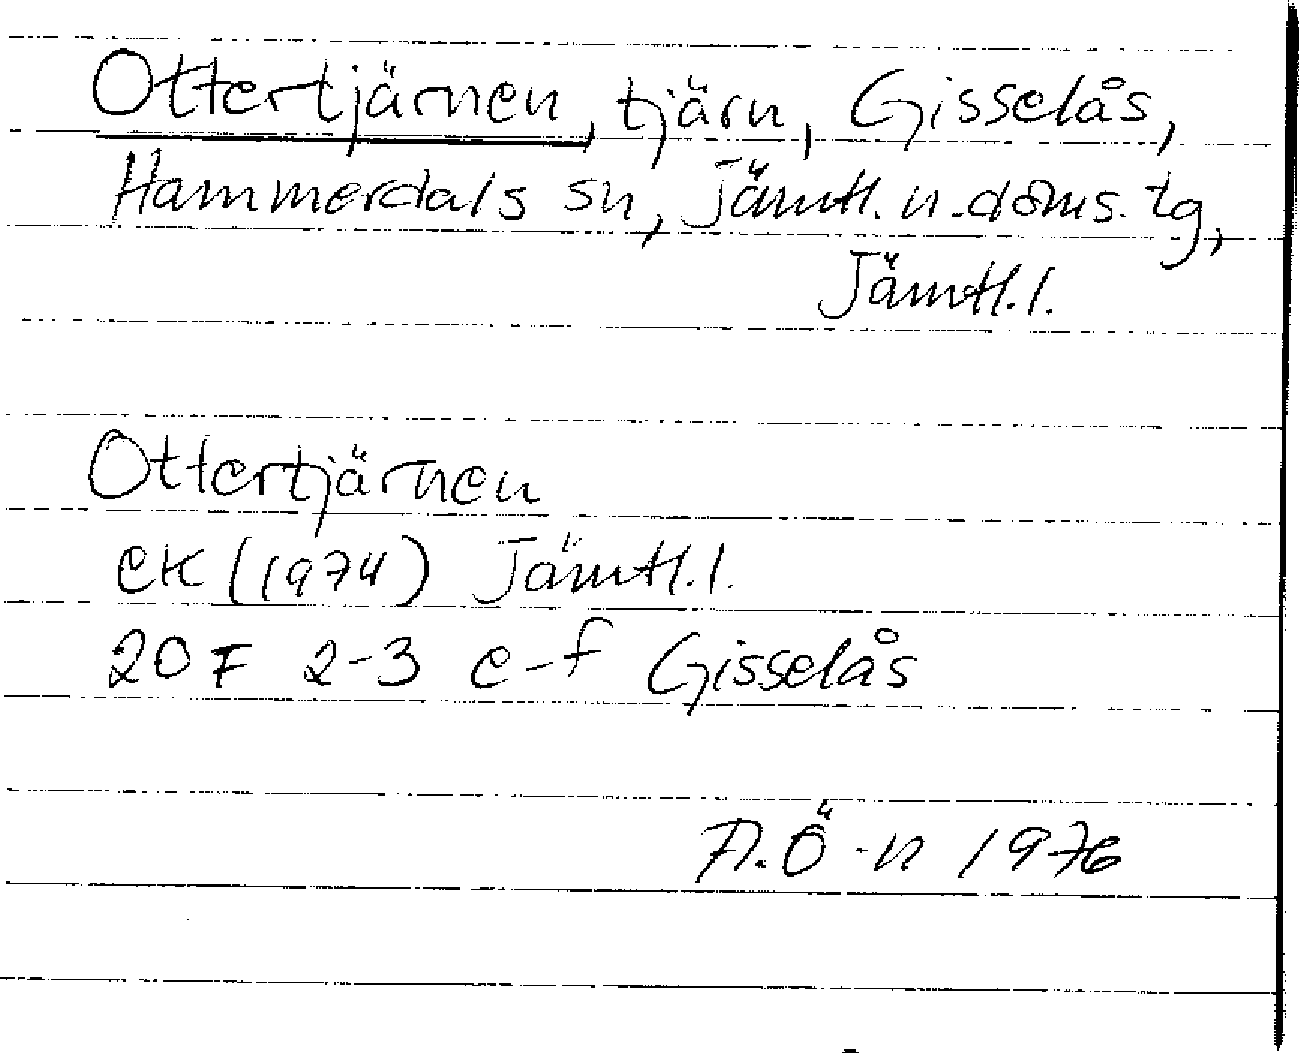 Ottertjärnen, tjärn, Gisselås,
Hammerdals sn, Jämtl. n. doms. tg,
Jämtl. l.
Ottertjärnen
EK (1974) Jämtl. l.
20 F 2-3 e-f Gisselås
A. Ö-n 1976